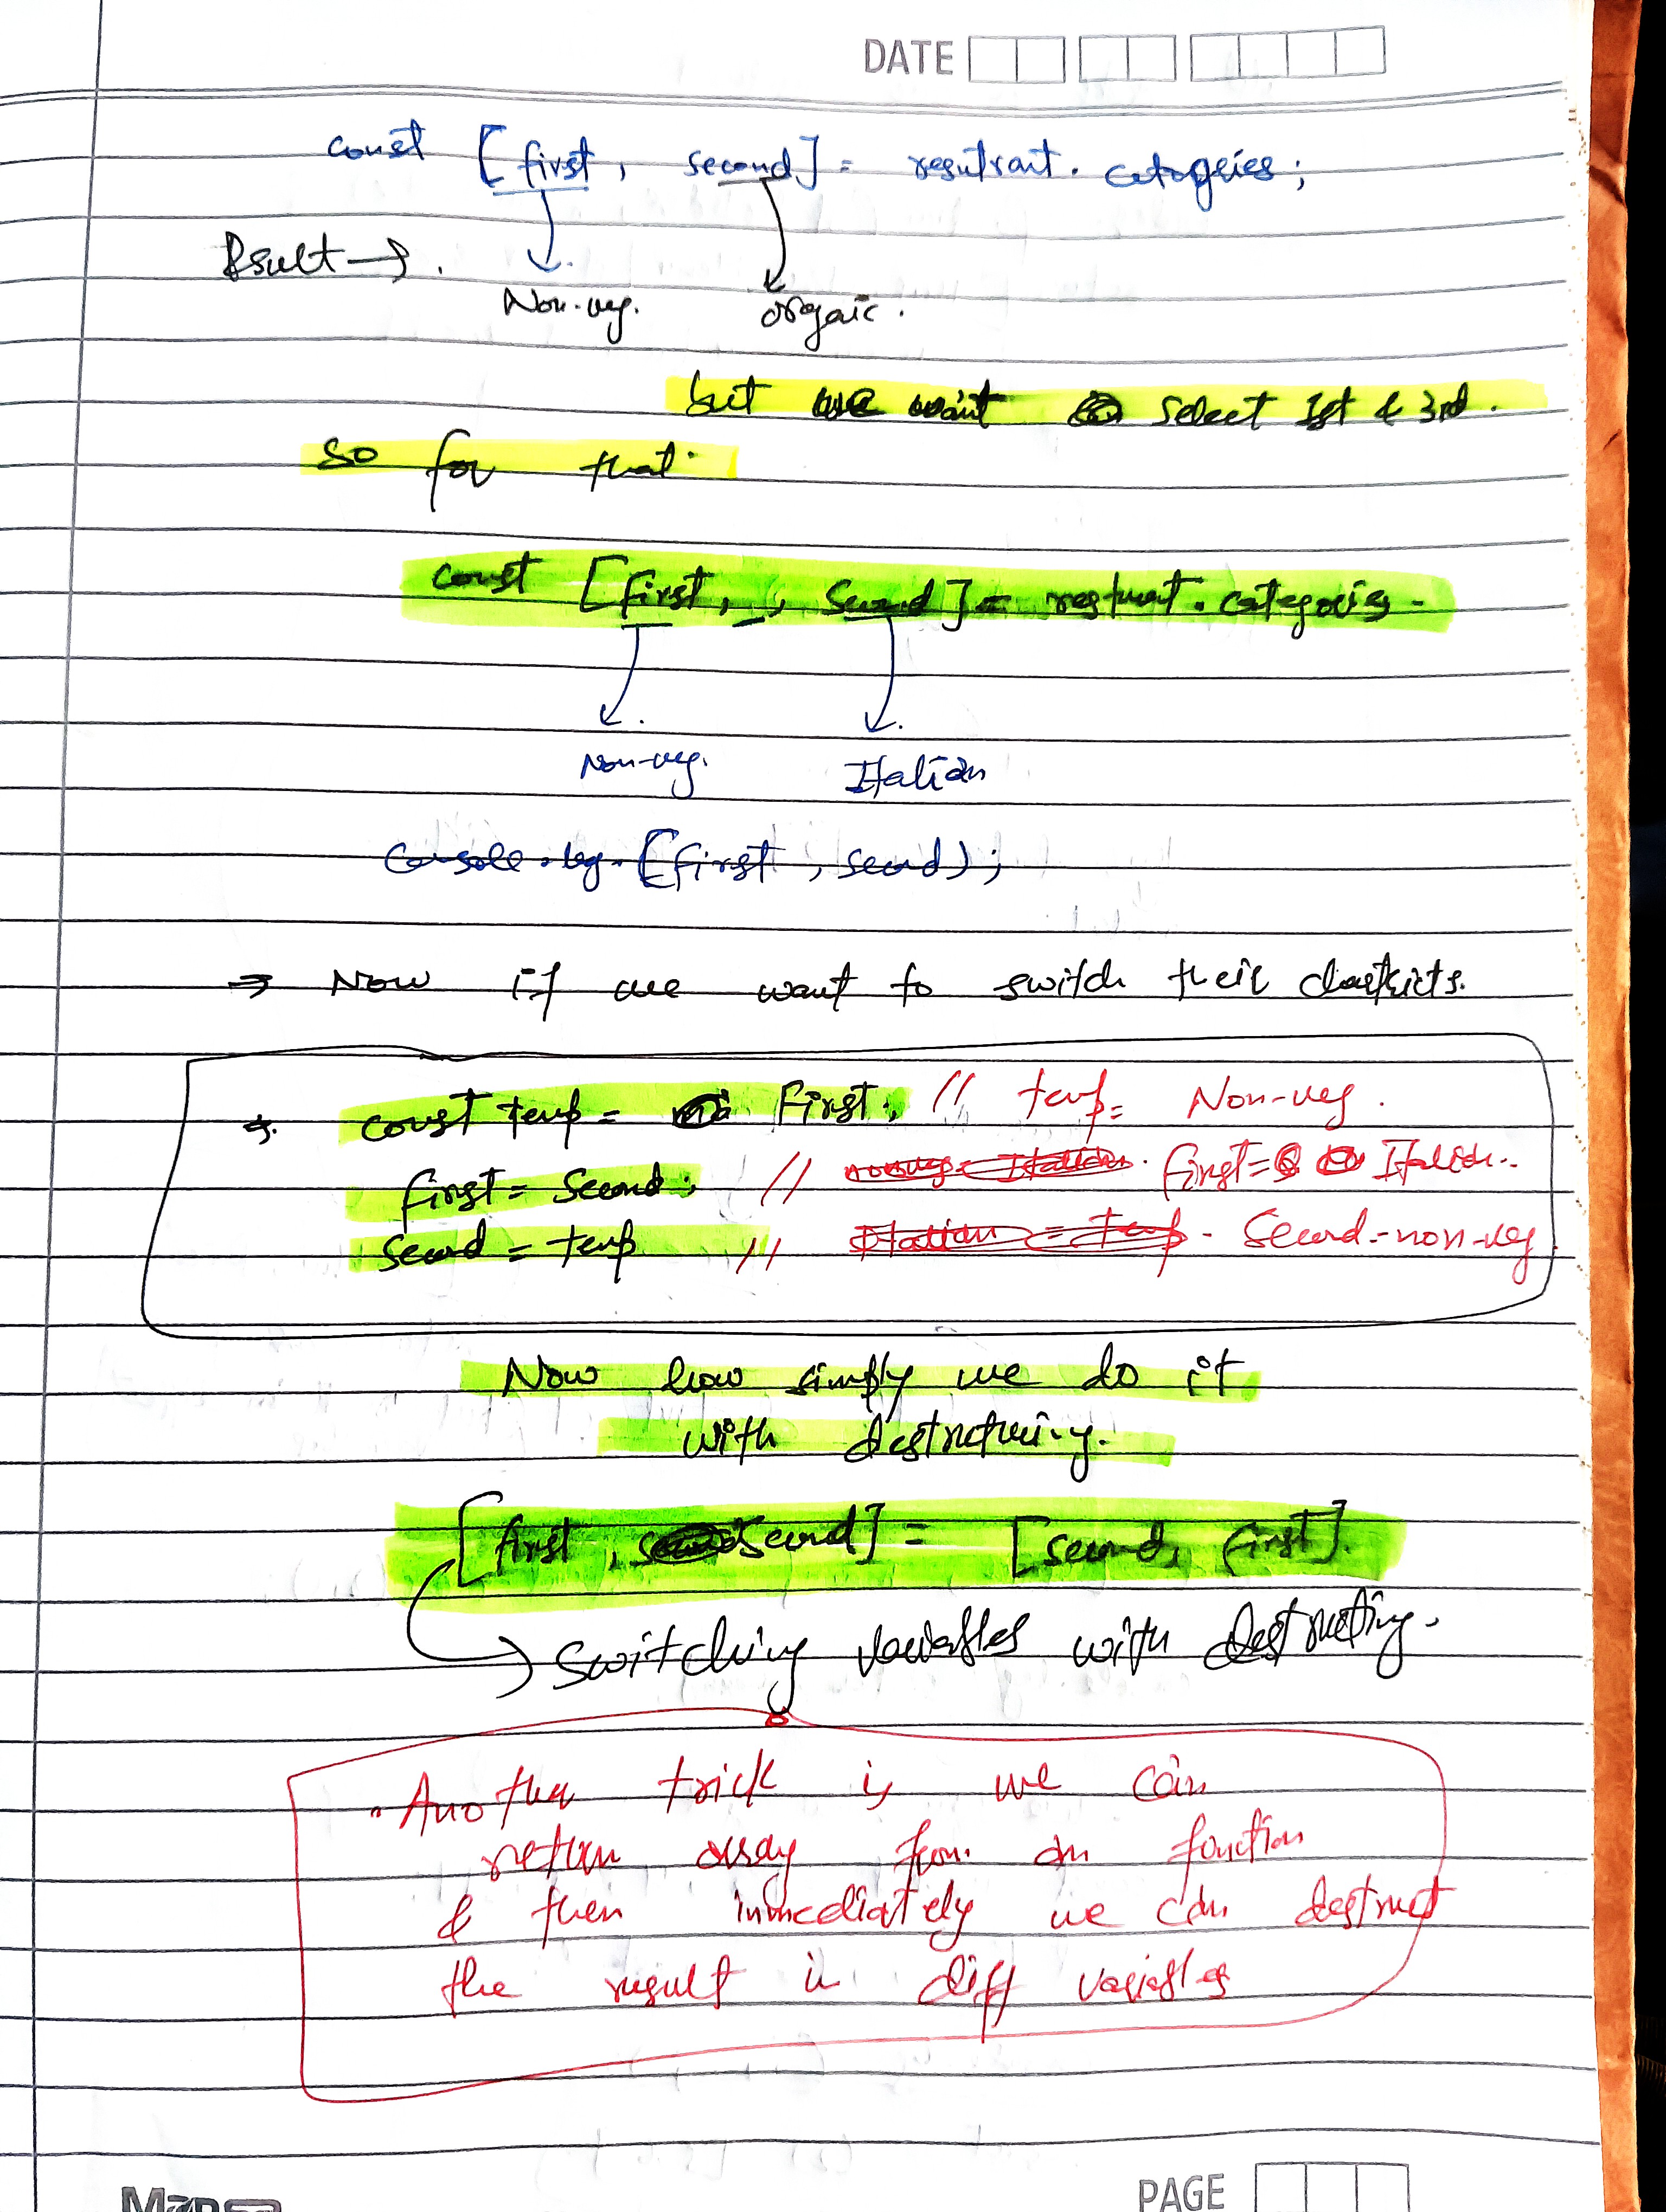 DATE
const [first, second] = resutrant. catogries;
Rsult → .
Non-veg. orgaic.
but we want select 1st & 3rd.
so for that.
const [first, _, Second] = restuat. categories.
Non-veg. Italian
Console.log.(first, second);
→ Now if we want to switch their
const temp = First; // temp= Non-veg.
first = Second; // first= Italian.
Second = temp // Second.-non-veg
Now how simply we do it
with destructuring.
[first, Second] = [second, first].
→ switching variables with destructing.
Another trick is we can
return array from an function
& then immediately we can destruct
the result in diff variables
PAGE